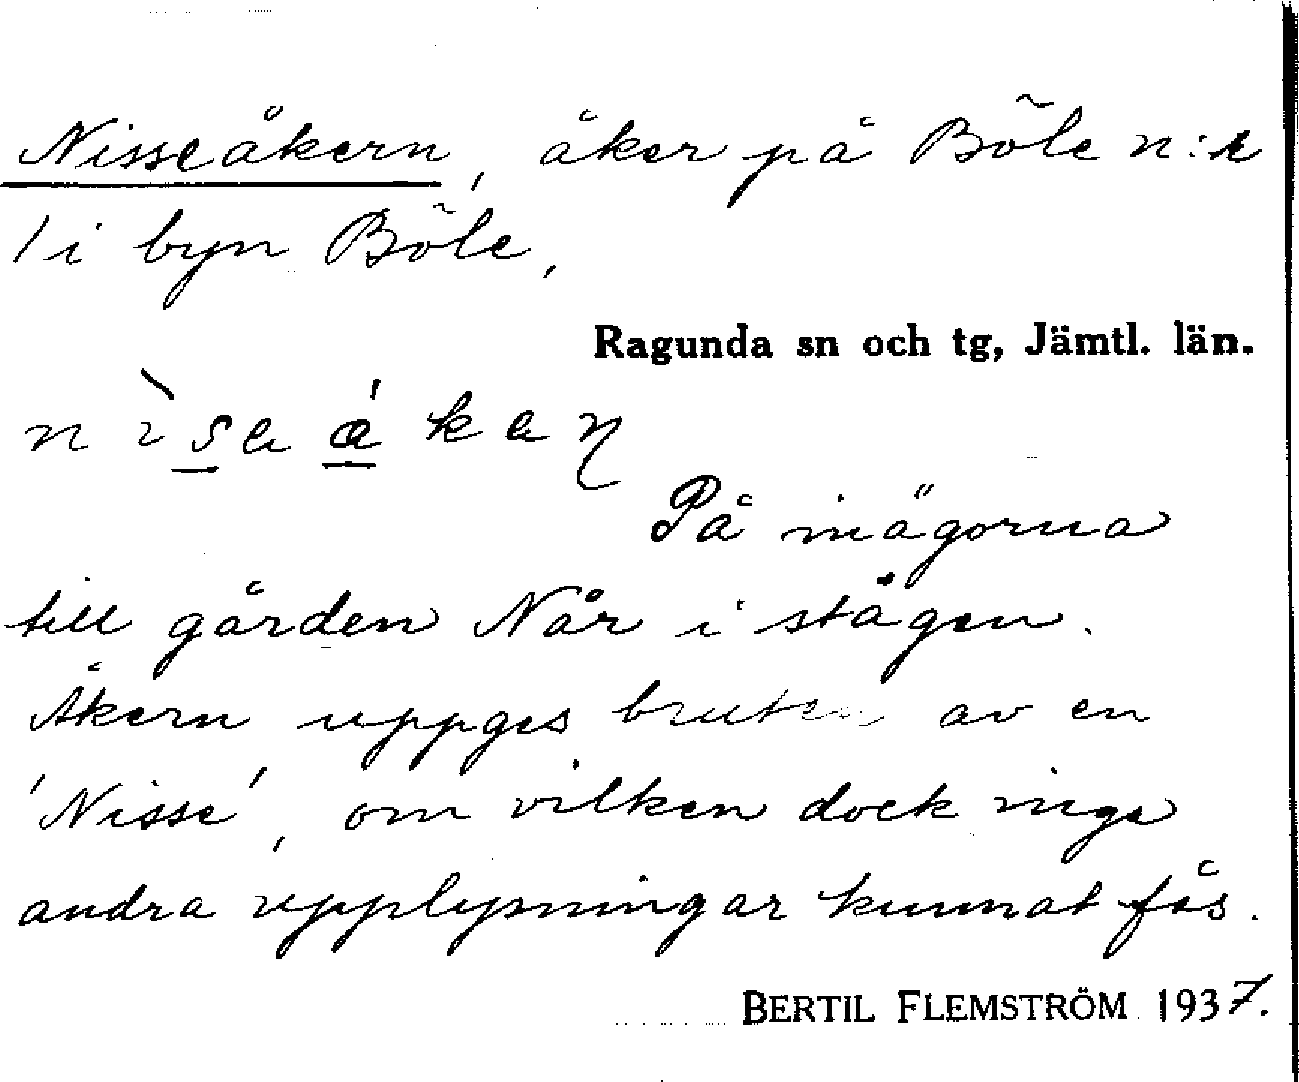 Nisseåkern, åker på Böle n:r
1 i byn Böle,
Ragunda sn och tg, Jämtl. län.
På inägorna
till gården Når i stägen.
Åkern uppges bruten av en
'Nisse', om vilken dock inga
andra upplysningar kunnat fås.
BERTIL FLEMSTRÖM 1937.